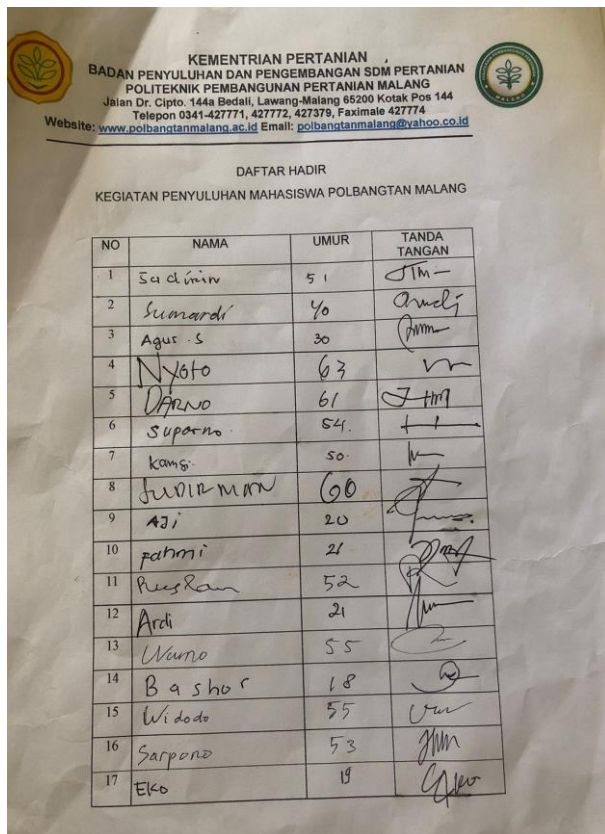 KEMENTRIAN PERTANIAN
BADAN PENYULUHAN DAN PENGEMBANGAN SDM PERTANIAN
POLITEKNIK PEMBANGUNAN PERTANIAN MALANG
Jalan Dr. Cipto. 144a Bedali, Lawang-Malang 65200 Kotak Pos 144
Telepon 0341-427771, 427772, 427379, Faximale 427774
Website: www.polbangtanmalang.ac.id Email: polbangtanmalang@yahoo.co.id
DAFTAR HADIR
KEGIATAN PENYULUHAN MAHASISWA POLBANGTAN MALANG
NO NAMA UMUR TANDA TANGAN
1 Sadimin 51
2 Sumardi 40
3 Agus . S 30
4 NYOTO 63
5 DARNO 61
6 Suparno 54.
7 50.
8 SUDIRMAN 60
9 AJi 20
10 Fahmi 21
11 Ruslan 52
12 Ardi 21
13 Warno 55
14 Bashor 18
15 Widodo 55
16 Sarpono 53
17 EKO 19